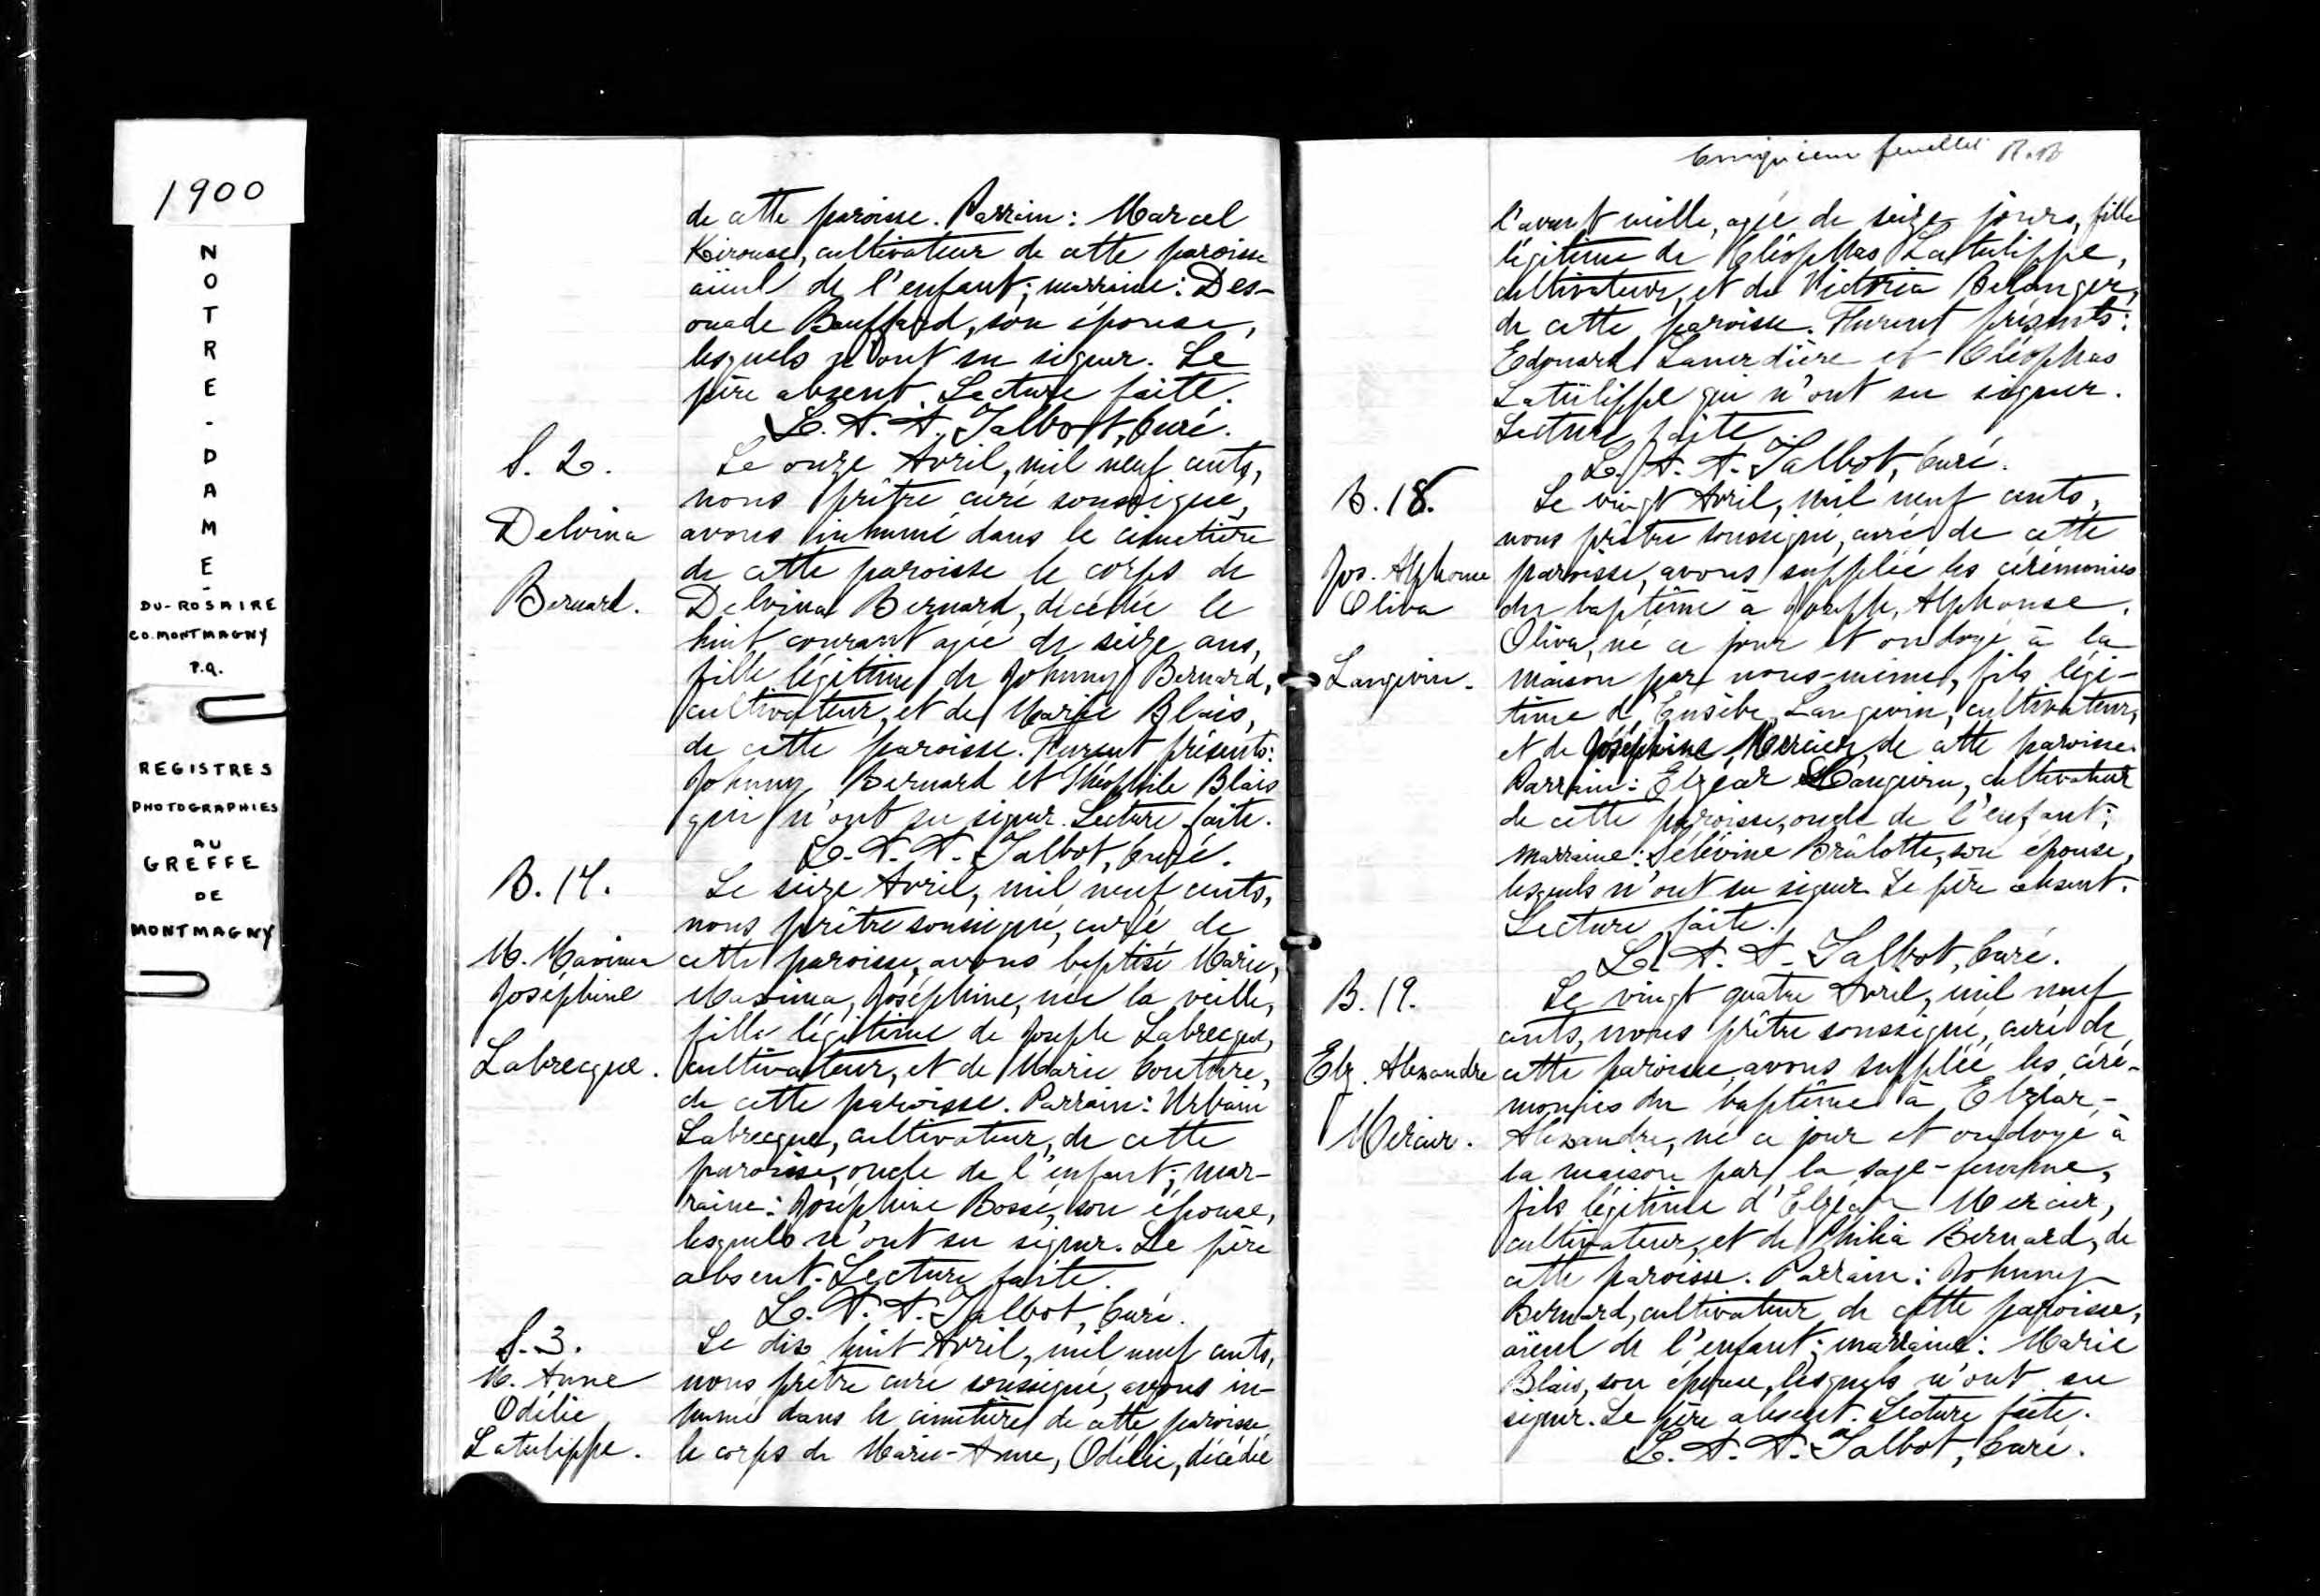 1900
NOTRE-DAME-
DU-ROSAIRE
CO. MONTMAGNY
P.Q.
REGISTRES
PHOTOGRAPHIES
AU
GREFFE
DE
MONTMAGNY
de cette paroisse. Parrain: Marcel
Kirouac, cultivateur de cette paroisse
aïeul de l'enfant; marraine: Des-
ouade Bouffard, son épouse,
lesquels n'ont su signer. Le
père absent. Lecture faite.
L. A. A. Talbot, Curé.
S. 2.
Delvina
Bernard.
Le onze Avril, mil neuf cents,
nous prêtre curé soussigné,
avons inhumé dans le cimetière
de cette paroisse le corps de
Delvina Bernard, décédée le
huit courant agée de seize ans,
fille légitime de Johnny Bernard,
cultivateur, et de Marie Blais,
de cette paroisse. Furent présents:
Johnny Bernard et Théophile Blais
qui n'ont su signer. Lecture faite.
L. A. A. Talbot, Curé.
B. 17.
M. Maxima
Joséphine
Labrecque.
Le seize Avril, mil neuf cents,
nous prêtre soussigné, curé de
cette paroisse, avons baptisé Marie,
Maxima, Joséphine, née la veille,
fille légitime de Joseph Labrecque,
cultivateur, et de Marie Couture,
de cette paroisse. Parrain: Urbain
Labrecque, cultivateur, de cette
paroisse, oncle de l'enfant; mar-
raine: Joséphine Bossé, son épouse,
lesquels n'ont su signer. Le père
absent. Lecture faite.
L. A. A. Talbot, Curé.
S. 3.
M. Anne
Odélie
Latulippe.
Le dix huit Avril, mil neuf cents,
nous prêtre curé soussigné, avons in-
humé dans le cimetière de cette paroisse
le corps de Marie-Anne, Odélie, décédée
Cinquième feuillet
l'avant veille, agée de seize jours, fille
légitime de Cléophas Latulippe,
cultivateur, et de Victoria Belanger,
de cette paroisse. Furent présents:
Edouard Laverdière et Cléophas
Latulippe qui n'ont su signer.
Lecture faite.
L. A. A. Talbot, Curé.
B. 18.
Jos. Alphonse
Oliva
Langevin.
Le vingt Avril, mil neuf cents,
nous prêtre soussigné, curé de cette
paroisse, avons supplée les cérémonies
du baptême à Joseph, Alphonse,
Oliva, né ce jour et ondoyé à la
maison par nous-même, fils légi-
time d'Eusèbe Langevin, cultivateur,
et de Joséphine Mercier, de cette paroisse.
Parrain: Elzéar Langevin, cultivateur
de cette paroisse, oncle de l'enfant;
marraine: Brûlotte, son épouse,
lesquels n'ont su signer. Le père absent.
Lecture faite.
L. A. A. Talbot, Curé.
B. 19.
Elz. Alexandre
Mercier.
Le vingt quatre Avril, mil neuf
cents, nous prêtre soussigné, curé de
cette paroisse, avons supplée les céré-
monies du baptême à Elzéar,-
Alexandre, né ce jour et ondoyé à
la maison par la sage-femme,
fils légitime d'Elzéar Mercier,
cultivateur, et de Philia Bernard, de
cette paroisse. Parrain: Johnny
Bernard, cultivateur de cette paroisse,
aïeul de l'enfant; marraine: Marie
Blais, son épouse, lesquels n'ont su
signer. Le père absent. Lecture faite.
L. A. A. Talbot, Curé.